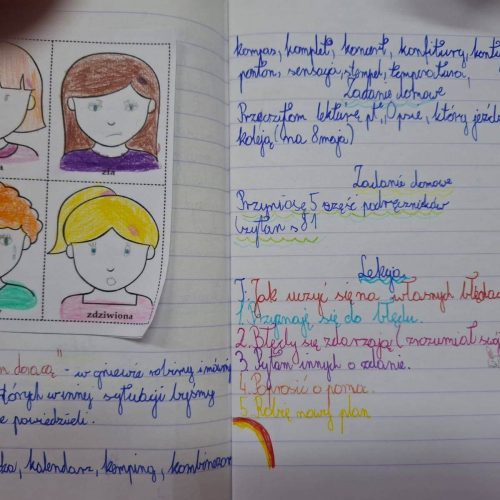 zła
zdziwiona
dorosą" - w gniewie robimy i mówimy
których w innej sytuacji byśmy
powiedzieli.
kalendarz, kemping, kombinezon
kompas, komplet, koncert, konfitury,
ponton, sensacja, stempel, temperatura,
Zadanie domowe
Przeczytam lekturę pt. „O psie, który jeździł
koleją (na 8 maja)
Zadanie domowe
Przyniosę 5 część podręczników
Czytan s 81
Lekcja
T: Jak uczyć się na własnych błędach
1. Przyznaję się do błędu.
2. Błędy się zdarzają (zrozumiał swój
3. Pytam innych o zdanie.
4. Poprosić o pomoc.
5. Robię nowy plan